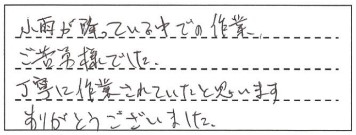 小雨が降っている中での作業、
ご苦労様でした。
丁寧に作業されていたと思います
ありがとうございました。